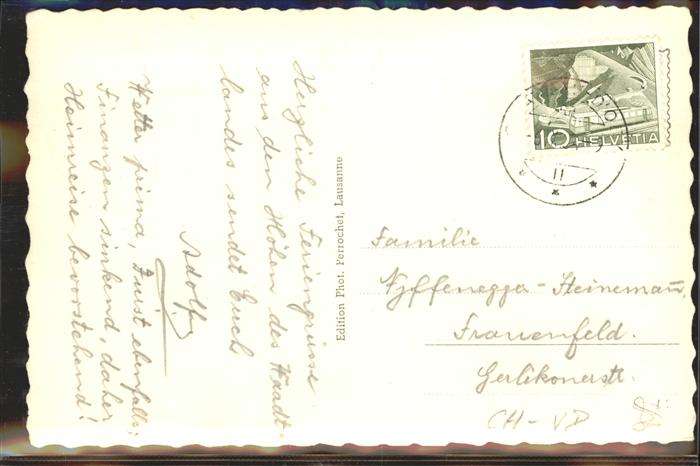 Herzliche Feriengrüsse
aus den Höhen des Waadt-
landes sendet Euch
Adolf.
Wetter prima, Durst ebenfalls;
Finanzen sinkend, daher
Heimreise bevorstehend!
Edition Phot. Perrochet, Lausanne
10 HELVETIA
II
Familie
Nyffenegger-Steinemann,
Frauenfeld.
Gerlikonerstr.
CH-VD